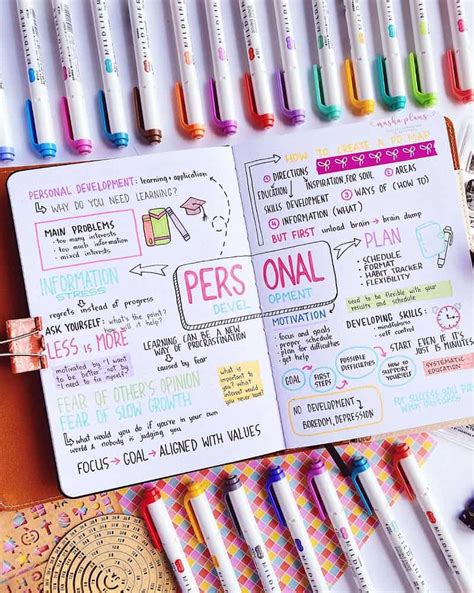 PERSONAL DEVELOPMENT: learning + application
WHY DO YOU NEED LEARNING?
MAIN PROBLEMS
• too many interests
• too much information
• mixed interests
INFORMATION
STRESS
regrets instead of progress
ASK YOURSELF: what's the point?
will it help?
LESS is MORE
LEARNING CAN BE A NEW
WAY OF PROCRASTINATION
caused by fear
motivated by "I want
to be better" not by
"I need to fix myself"
FEAR OF OTHER'S OPINION
FEAR OF SLOW GROWTH
what is it
important to
you?
interest would
you never leave?
what would you do if you're in your own
world & nobody is judging you
FOCUS → GOAL → ALIGNED WITH VALUES
PERSONAL
DEVELOPMENT
masha plans
HOW TO CREATE A PD MAP
① DIRECTIONS
② INSPIRATION FOR SOUL
⑤ AREAS
EDUCATION
SKILLS DEVELOPMENT
③ WAYS OF (HOW TO)
④ INFORMATION (WHAT)
BUT FIRST unload brain → brain dump
PLAN
SCHEDULE
FORMAT
HABIT TRACKER
FLEXIBILITY
need to be flexible with your
results and schedule
MOTIVATION
• focus and goals
• proper schedule
• plan for difficulties
• get help
DEVELOPING SKILLS:
• mindfulness
• self control
START EVEN IF IT'S
JUST 15 MINUTES
GOAL
FIRST
STEPS
POSSIBLE
DIFFICULTIES
HOW to
SUPPORT
YOURSELF
SYSTEMATIC
EDUCATION
NO DEVELOPMENT
BOREDOM, DEPRESSION
FOR SUCCESS
MILDLINER